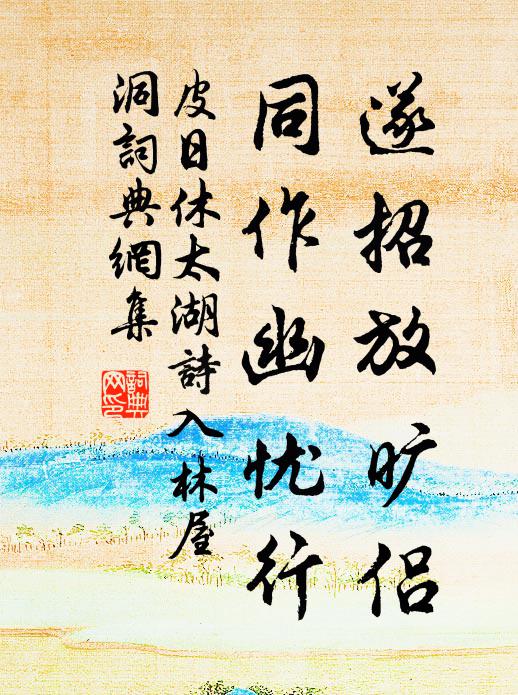 遂招放旷侣
同作幽忧行
皮日休太湖詩入林屋
洞詞典網集
詞典
网印